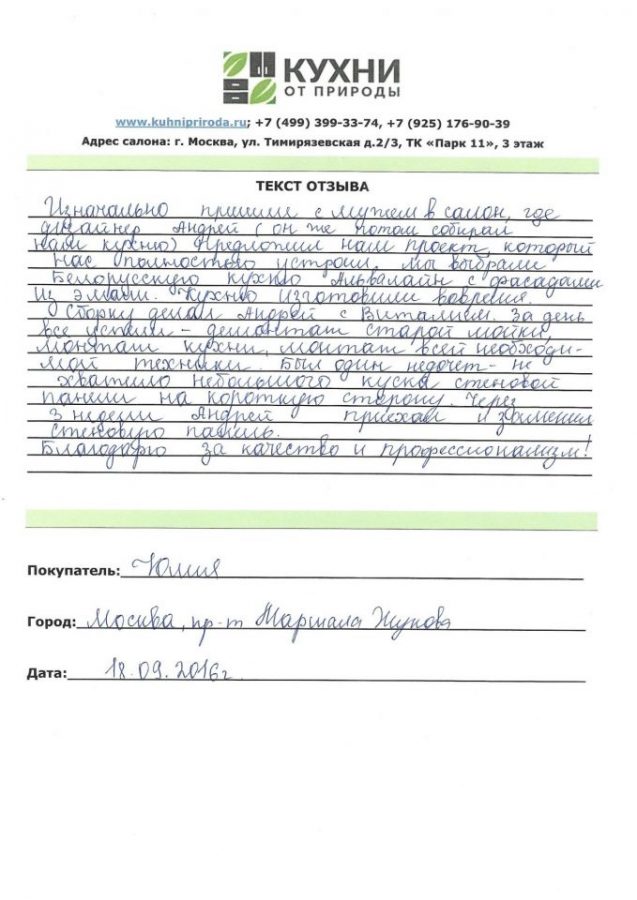 КУХНИ
ОТ ПРИРОДЫ
www.kuhnipriroda.ru; +7 (499) 399-33-74, +7 (925) 176-90-39
Адрес салона: г. Москва, ул. Тимирязевская д.2/3, ТК «Парк 11», 3 этаж
ТЕКСТ ОТЗЫВА
Изначально пришли с мужем в салон, где
дизайнер Андрей (он же потом собирал
нам кухню) предложил нам проект, который
нас полностью устроил, мы выбрали
Белорусскую кухню Альвалайн с фасадами
из эмали. Кухню изготовили вовремя.
Сборку делал Андрей с Виталием. За день
все успели - демонтаж старой мойки,
монтаж кухни, монтаж всей необходи-
мой техники. Был один недочет - не
хватило небольшого куска стеновой
панели на короткую сторону. Через
3 недели Андрей приехал и заменил
стеновую панель.
Благодарю за качество и профессионализм!
Покупатель: Юлия
Город: Москва, пр-т Маршала Жукова
Дата: 18.09.2016г.